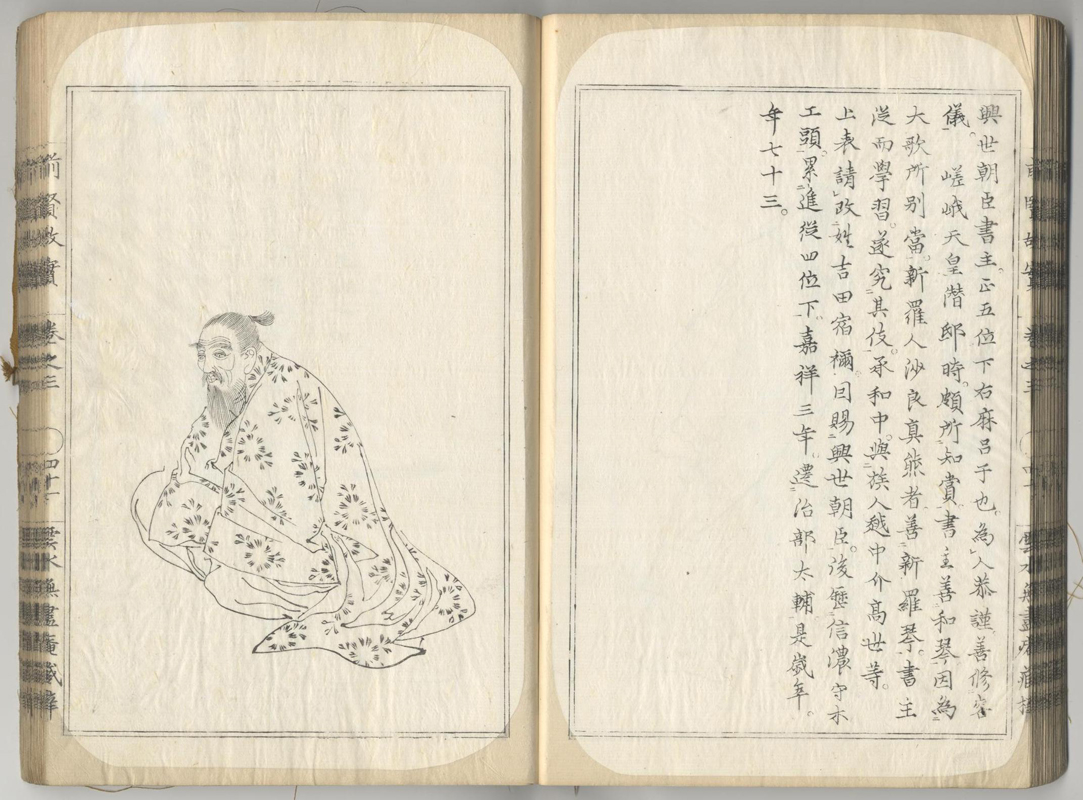 興世朝臣書主。正五位下右麻呂子也。為人恭謹善修容
儀。嵯峨天皇潛邸時。頗所知賞。書主善和琴。因為
大歌所別當。新羅人沙良真熊者。善新羅琴。書主
從而學習。遂究其伎。承和中。與族人越中介高世等。
上表請改姓吉田宿禰。因賜興世朝臣。後歷信濃守木
工頭。累進從四位下。嘉祥三年。遷治部太輔。是歲卒。
年七十三。
前賢故實
卷之三
四十一
雲水無盡庵藏梓